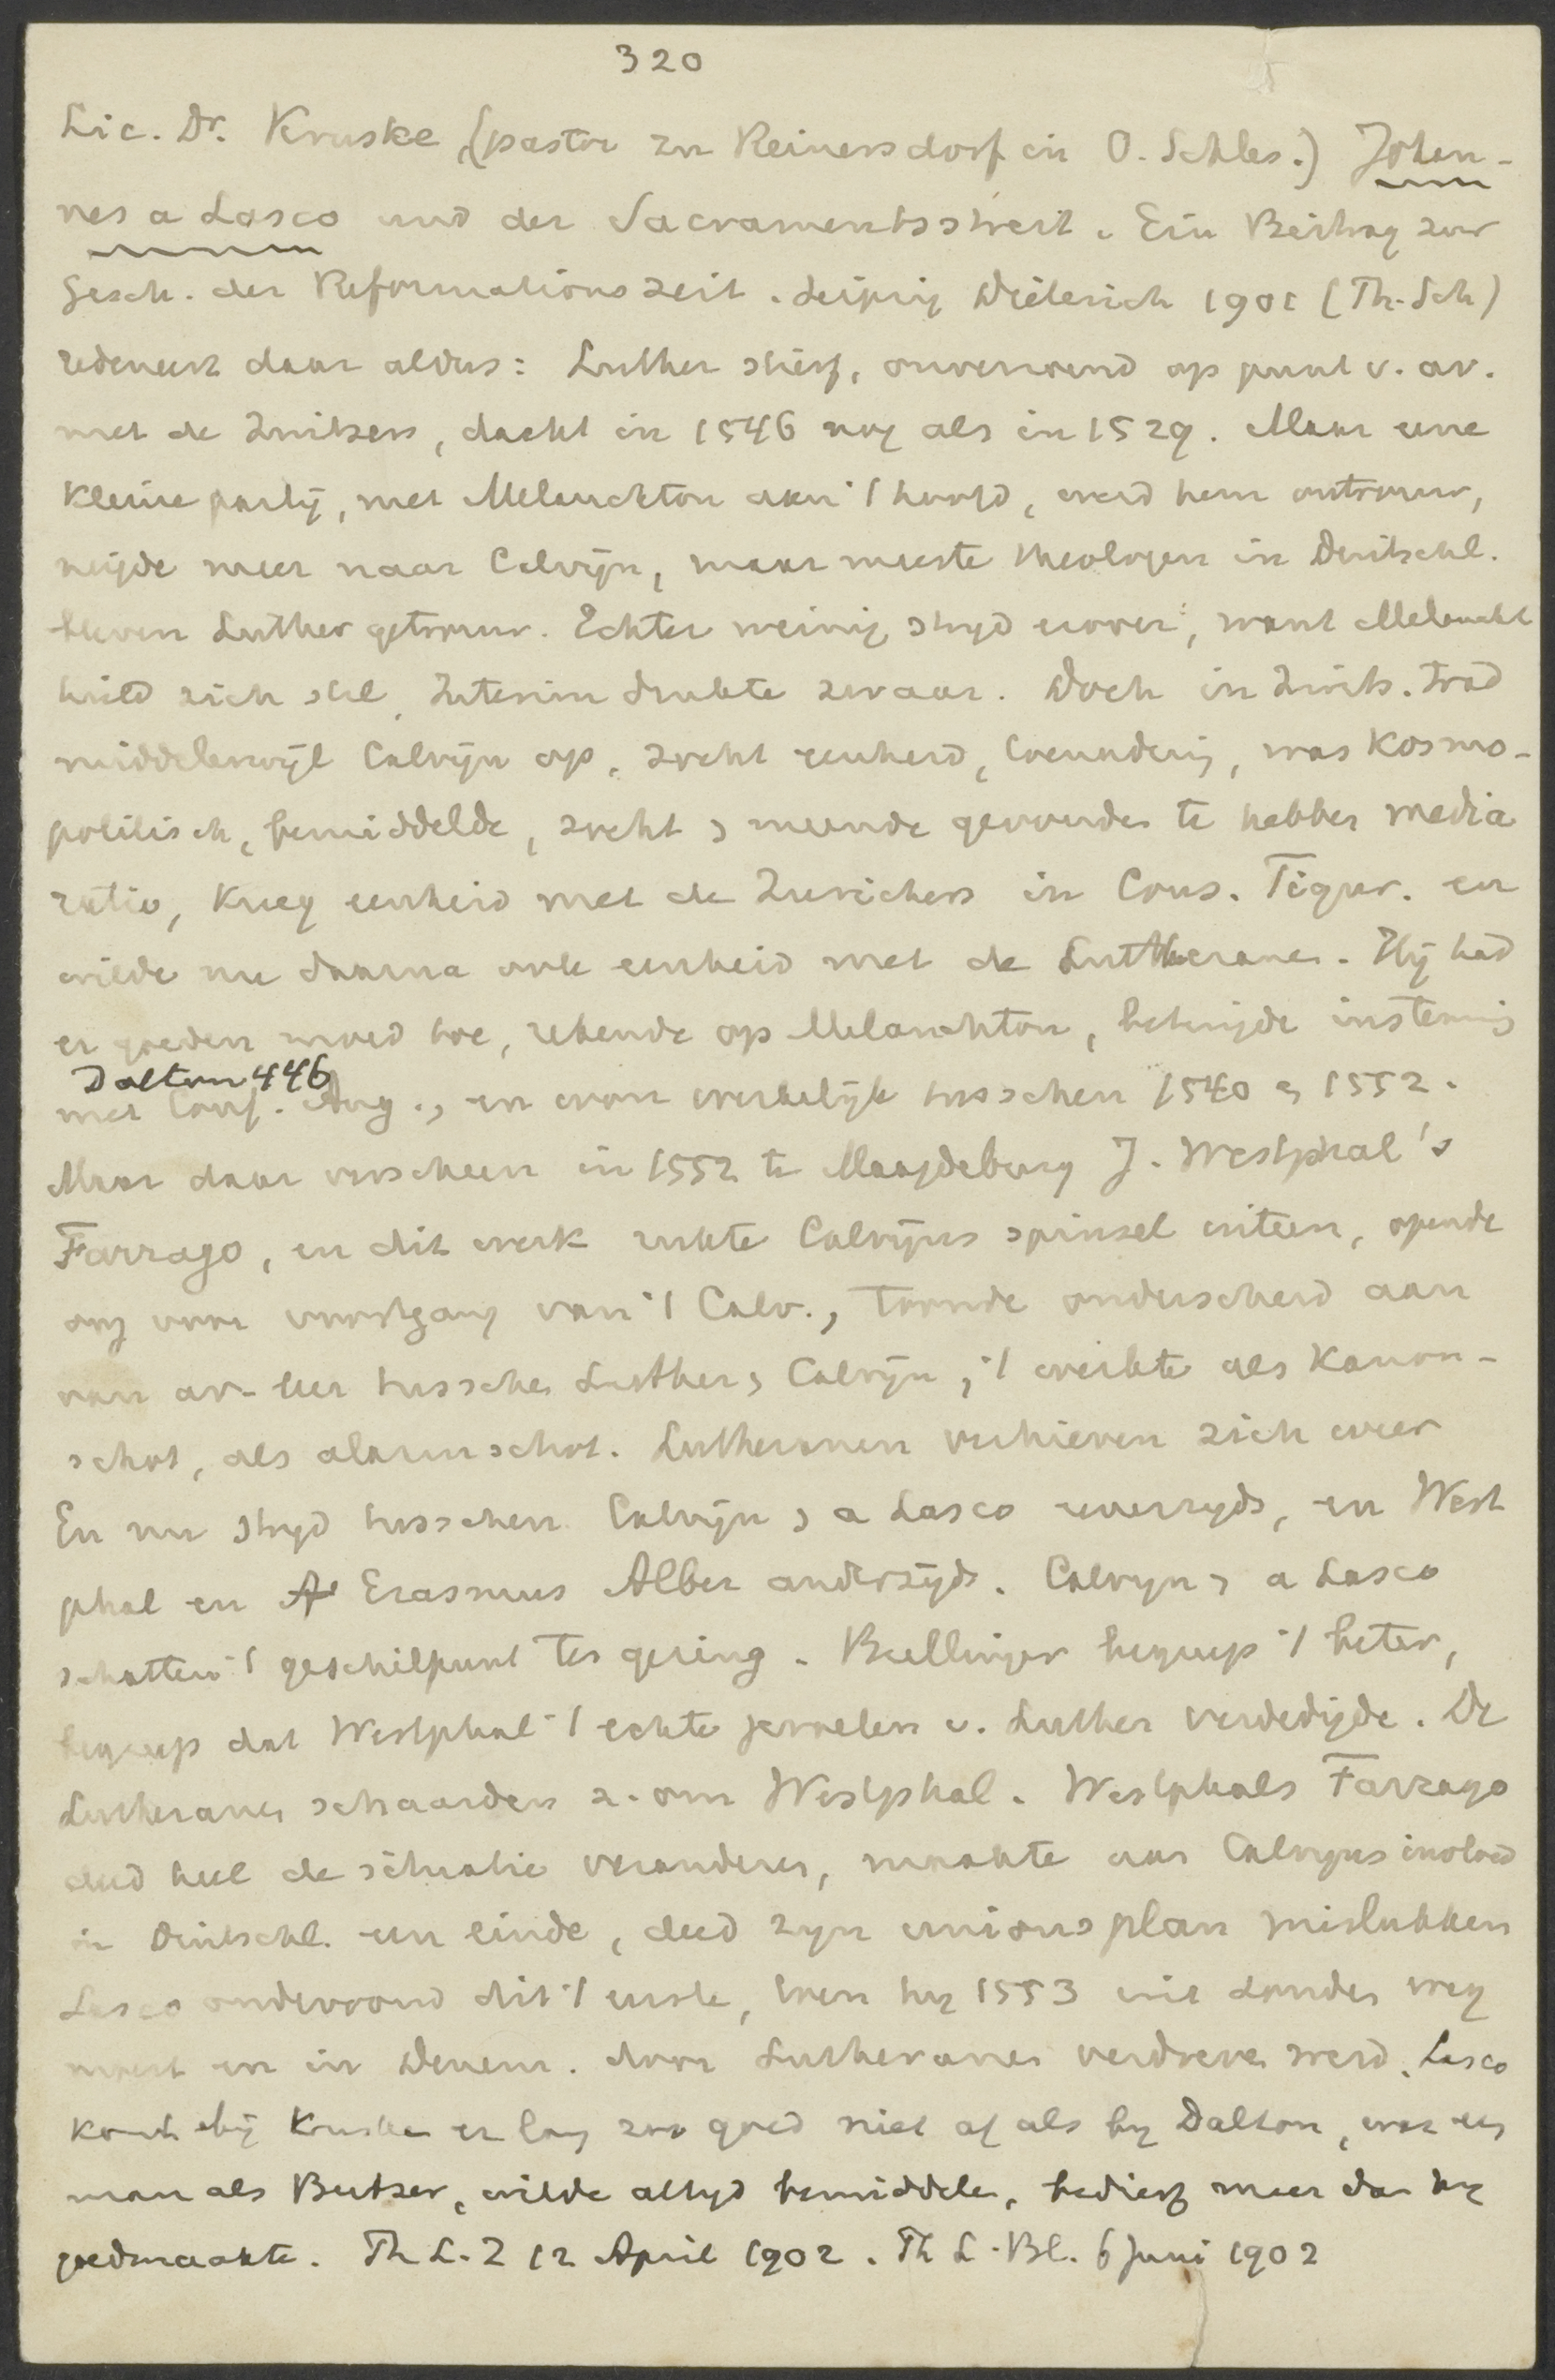 320
Lic. Dr. Kruske, (pastor zu Reinersdorf in O. Schles.) Johan-
nes a Lasco und der Sacramentsstreit. Ein Beitrag zur
Gesch. der Reformationszeit. Leipzig Dieterich 1901 (Th. Sch)
redeneert daar aldus: Luther stierf, onverzoend op punt v. av.
met de Zwitsers, dacht in 1546 nog als in 1529. Maar eene
kleine partij, met Melanchton aan 't hoofd, werd hem ontrouw,
neigde meer naar Calvijn, maar meeste theologen in Duitschl.
bleven Luther getrouw. Echter weinig strijd erover, want Melancht
hield zich stil, Interim drukte zwaar. Doch in Zwits. trad
middelerwijl Calvijn op, zocht eenheid, was kosmo-
politisch, bemiddelde, zocht & meende gevonden te hebben media
ratio, kreeg eenheid met de Zurichers in Cons. Tigur. en
wilde nu daarna ook eenheid met de Lutheranen. Hij had
er goeden moed toe, rekende op Melanchton, betuigde instemming
Dalton 446
met Conf. Aug., en won werkelijk tusschen 1540 & 1552.
Maar daar verscheen in 1552 te Maagdeburg J. Westphal's
Farrago, en dit werk rukte Calvijns spinsel uiteen, opende
oog voor voortgang van 't Calv., toonde onderscheid aan
van av-leer tusschen Luther & Calvijn, 't werkte als kanon-
schot, als alarmschot. Lutheranen verhieven zich weer
En nu strijd tusschen Calvijn & a Lasco eenerzyds, en West
phal en Erasmus Alber anderzijds. Calvyn & a Lasco
schatten 't geschilpunt te gering. Bullinger begreep 't beter,
begreep dat Westphal 't echte v. Luther verdedigde. De
Lutheranen schaarden z. om Westphal. Westphals Farrago
deed heel de situatie veranderen, maakte aan Calvyns invloed
in Duitschl. een einde, deed zyn unionsplan mislukken
Lasco ondervond dit 't eerste, toen hy 1553 uit Londen weg
moest en in Denem. door Lutheranen verdreven werd. Lasco
komt bij Kruske er lang zoo goed niet af als by Dalton, was een
man als Butzer, wilde altyd bemiddelen, bedierf meer dan hy
goedmaakte. Th L. Z 12 April 1902. Th L. Bl. 6 Juni 1902